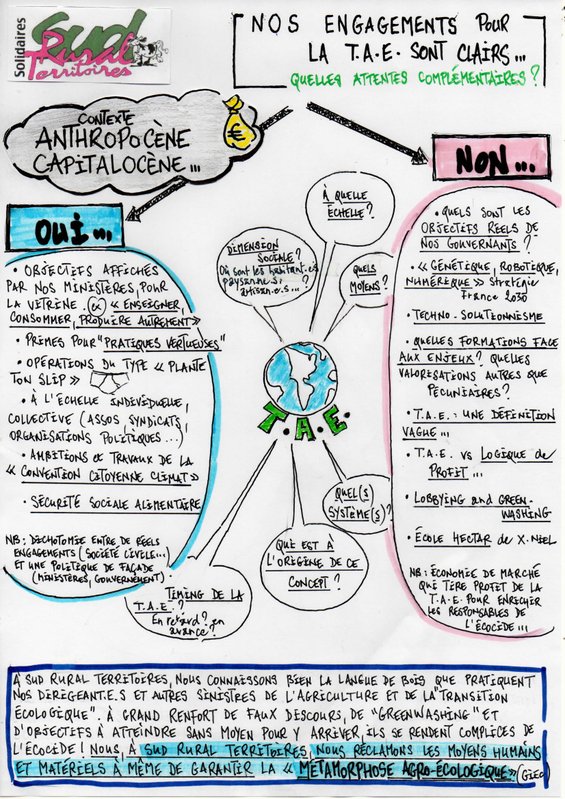 Solidaires
Sud
Rural
Territoires
NOS ENGAGEMENTS POUR
LA T.A.E. SONT CLAIRS...
QUELLES ATTENTES COMPLÉMENTAIRES ?
CONTEXTE
ANTHROPOCÈNE
CAPITALOCÈNE...
€
OUI...
• OBJECTIFS AFFICHÉS
PAR NOS MINISTÈRES, POUR
LA VITRINE. ex « ENSEIGNER,
CONSOMMER, PRODUIRE AUTREMENT »
• PRIMES POUR "PRATIQUES VERTUEUSES"
• OPÉRATIONS DU TYPE « PLANTE
TON SLIP »
• À L'ÉCHELLE INDIVIDUELLE,
COLLECTIVE (ASSOS, SYNDICATS,
ORGANISATIONS POLITIQUES...)
• AMBITIONS ET TRAVAUX DE LA
« CONVENTION CITOYENNE CLIMAT »
• SÉCURITÉ SOCIALE ALIMENTAIRE
NB : DICHOTOMIE ENTRE DE RÉELS
ENGAGEMENTS (SOCIÉTÉ CIVILE...)
ET UNE POLITIQUE DE FAÇADE
(MINISTÈRES, GOUVERNEMENT).
À QUELLE
ÉCHELLE ?
DIMENSION
SOCIALE ?
Où sont les habitant.es
paysan.ne.s,
artisan.e.s... ?
QUELS
MOYENS ?
T.A.E.
QUEL(S)
SYSTÈME(S) ?
QUI EST À
L'ORIGINE DE CE
CONCEPT ?
TIMING DE LA
T.A.E. ?
En retard ? en
avance ?
NON...
• QUELS SONT LES
OBJECTIFS RÉELS DE
NOS GOUVERNANTS ?
• « GÉNÉTIQUE, ROBOTIQUE,
NUMÉRIQUE » Stratégie
France 2030
• TECHNO-SOLUTIONNISME
• QUELLES FORMATIONS FACE
AUX ENJEUX ? QUELLES
VALORISATIONS AUTRES QUE
PÉCUNIAIRES ?
• T.A.E. : UNE DÉFINITION
VAGUE...
• T.A.E. VS LOGIQUE de
PROFIT...
• LOBBYING and GREEN-
WASHING
• ÉCOLE HECTAR de X. NIEL
NB : ÉCONOMIE DE MARCHÉ
QUI TIRE PROFIT DE LA
T.A.E. POUR ENRICHIR
LES RESPONSABLES DE
L'ÉCOCIDE...
À SUD RURAL TERRITOIRES, NOUS CONNAISSONS BIEN LA LANGUE DE BOIS QUE PRATIQUENT
NOS DIRIGEANT.E.S ET AUTRES SINISTRES DE L'AGRICULTURE ET DE LA "TRANSITION
ÉCOLOGIQUE". À GRAND RENFORT DE FAUX DISCOURS, DE "GREENWASHING" ET
D'OBJECTIFS À ATTEINDRE SANS MOYEN POUR Y ARRIVER, ILS SE RENDENT COMPLICES DE
L'ÉCOCIDE ! NOUS, À SUD RURAL TERRITOIRES, NOUS RÉCLAMONS LES MOYENS HUMAINS
ET MATÉRIELS À MÊME DE GARANTIR LA « MÉTAMORPHOSE AGRO-ÉCOLOGIQUE » (GIEC)